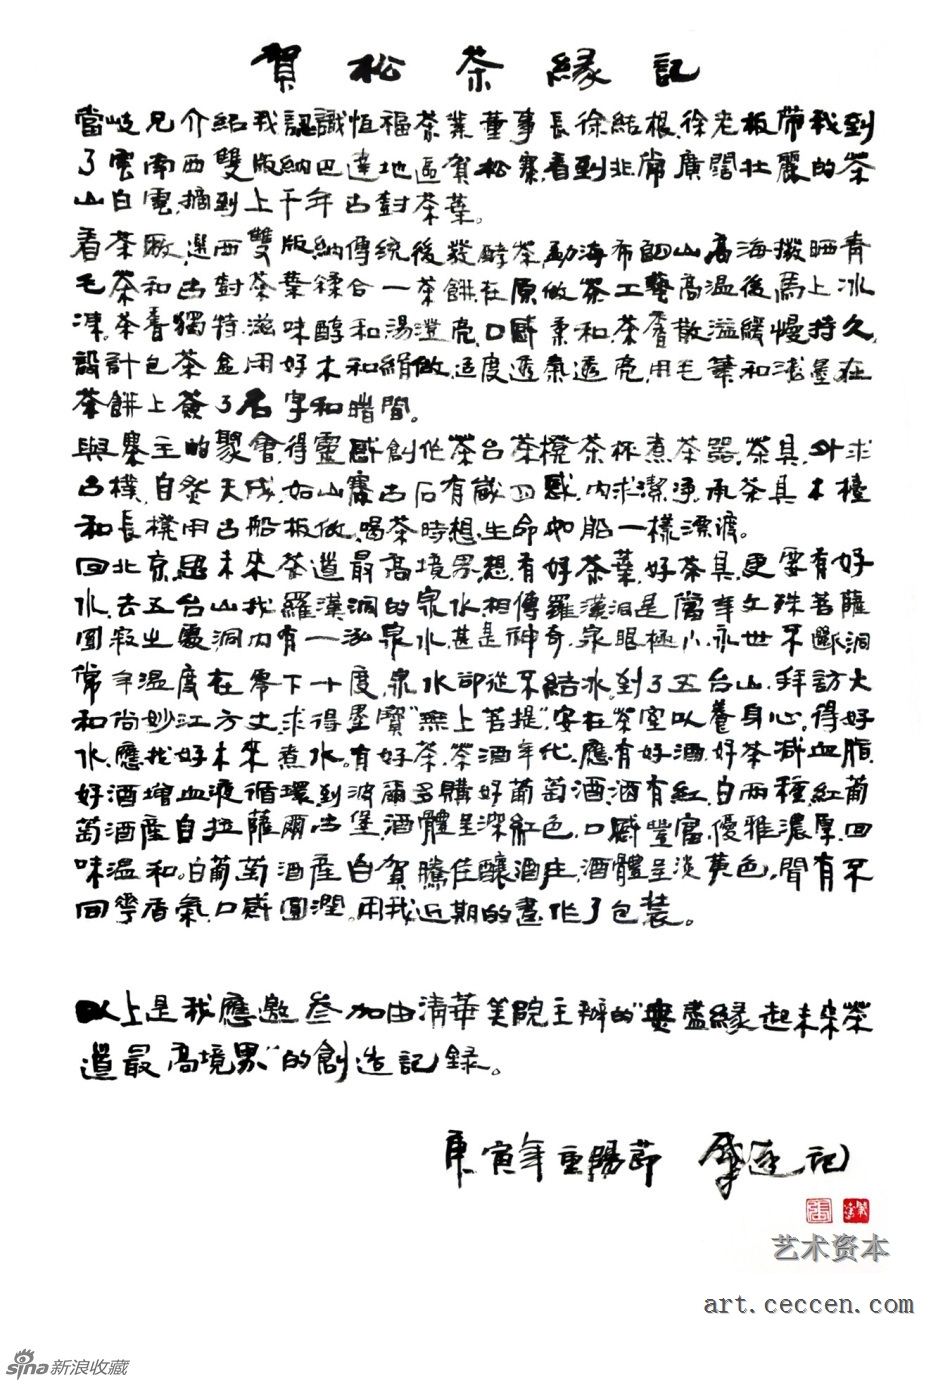 賀松茶緣記
當岐兄介紹我認識恒福茶業董事長徐結根,徐老板帶我到
了雲南西雙版納巴達地區賀松寨,看到非常廣闊壯麗的茶
山白雲,摘到上千年古樹茶葉。
看茶廠,選西雙版納傳統後發酵茶,勐海布朗山高海拔晒青
毛茶和古樹茶葉揉合一茶餅,在原做茶工藝高溫後馬上冰
凍,茶香獨特,滋味醇和,湯澄亮,口感柔和,茶香散溢緩慢持久,
設計包茶盒用好木和絹做,适度透氣透亮,用毛筆和淺墨,在
茶餅上簽了名字和時間。
與寨主的聚會,得靈感創作茶台茶櫈茶杯煮茶器,茶具,外求
古樸,自然天成,如山寨古石有凹感,內求潔淨,茶具木檯
和長櫈用古船板做,喝茶時想,生命如船一樣漂渡。
回北京,思未來茶道最高境界,想,有好茶葉,好茶具,更要有好
水,去五台山找羅漢洞的泉水,相傳羅漢洞是當年文殊菩薩
圓寂之處,洞內有一泓泉水,甚是神奇,泉眼極小,永世不斷,洞
常年溫度在零下十度,泉水卻從不結冰,到了五台山,拜訪大
和尚妙江方丈,求得墨寶"無上菩提",安在茶室以養身心,得好
水,應找好木來煮水。有好茶,茶酒年代,應有好酒,好茶減血脂,
好酒增血液循環,到波爾多購好葡萄酒,酒有紅,白兩種,紅葡
萄酒産自拉薩爾古堡,酒體呈深紅色,口感豐富,優雅濃厚,回
味溫和。白葡萄酒産自賀騰佳釀酒庄,酒體呈淡黃色,聞有不
同香氣,口感圓潤。用我近期的畫作了包裝。
以上是我應邀參加由清華美院主辦的"無盡緣起未來茶
道最高境界"的創造記錄。
庚寅年重陽節 記
艺术资本
art.ceccen.com
sina新浪收藏